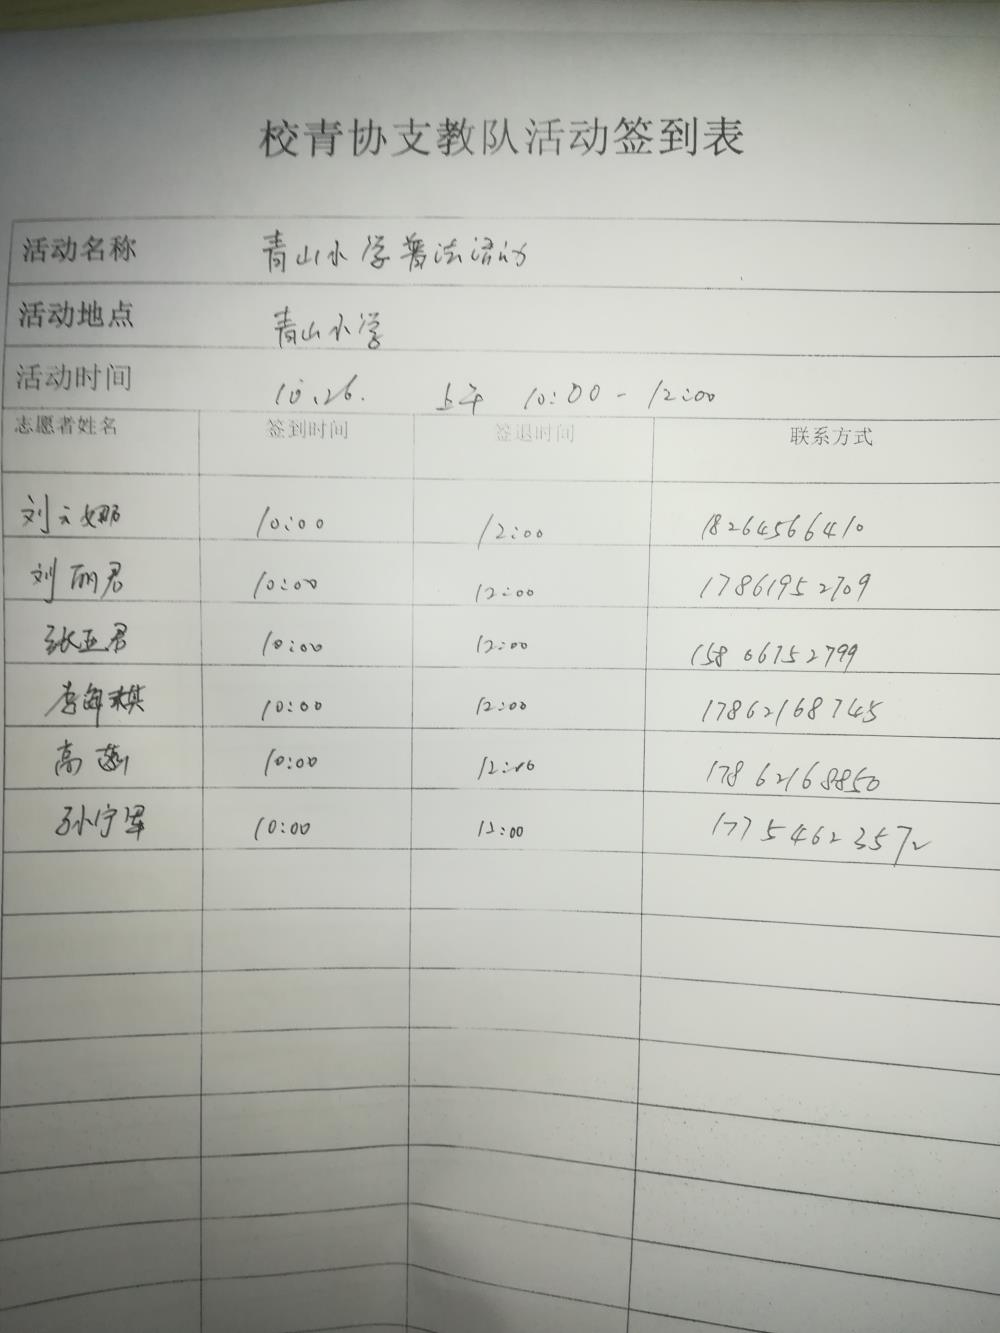 校青协支教队活动签到表
活动名称 青山小学普法活动
活动地点 青山小学
活动时间 10.26. 上午 10:00-12:00
志愿者姓名 签到时间 签退时间 联系方式
刘云娜 10:00 12:00 18264566410
刘丽君 10:00 12:00 17861952709
张亚君 10:00 12:00 15806752799
李海琪 10:00 12:00 17862168745
高 10:00 12:00 17862168850
孙宁 10:00 12:00 17754623572